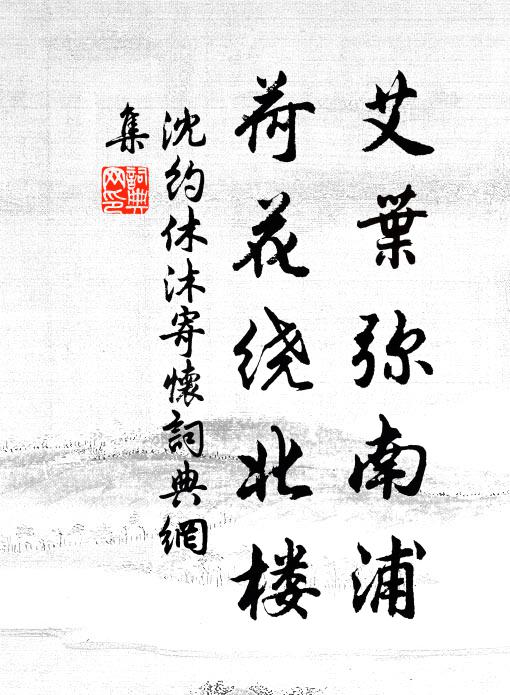 艾葉弥南浦
荷花绕北楼
沈约休沐寄懷詞典網
集
詞典网印